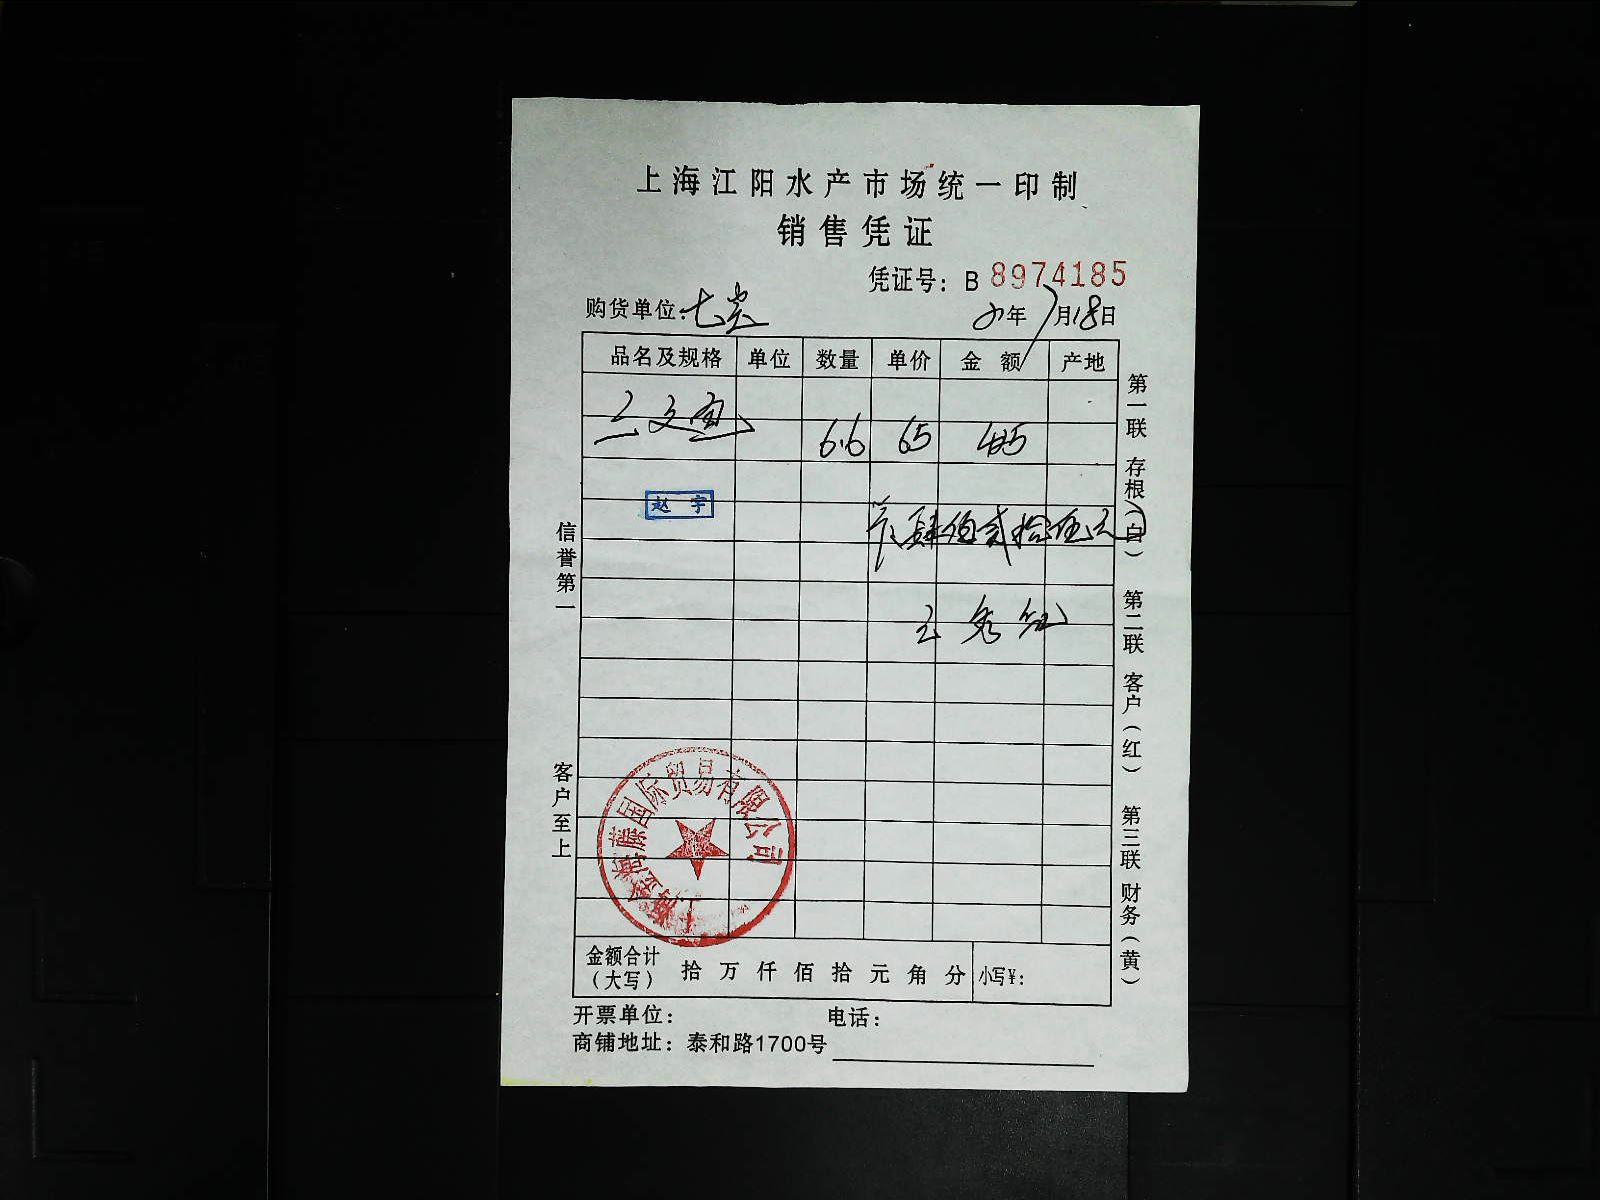 上海江阳水产市场统一印制
销售凭证
凭证号：B 8974185
购货单位：七
年7月18日
品名及规格 单位 数量 单价 金额 产地
三文鱼 6.6 65 425
赵宇
肆佰贰拾伍元
王秀红
上海金海藤国际贸易有限公司
金额合计（大写） 拾万仟佰拾元角分 小写¥：
开票单位： 电话：
商铺地址：泰和路1700号
信誉第一 客户至上
第一联 存根（白） 第二联 客户（红） 第三联 财务（黄）